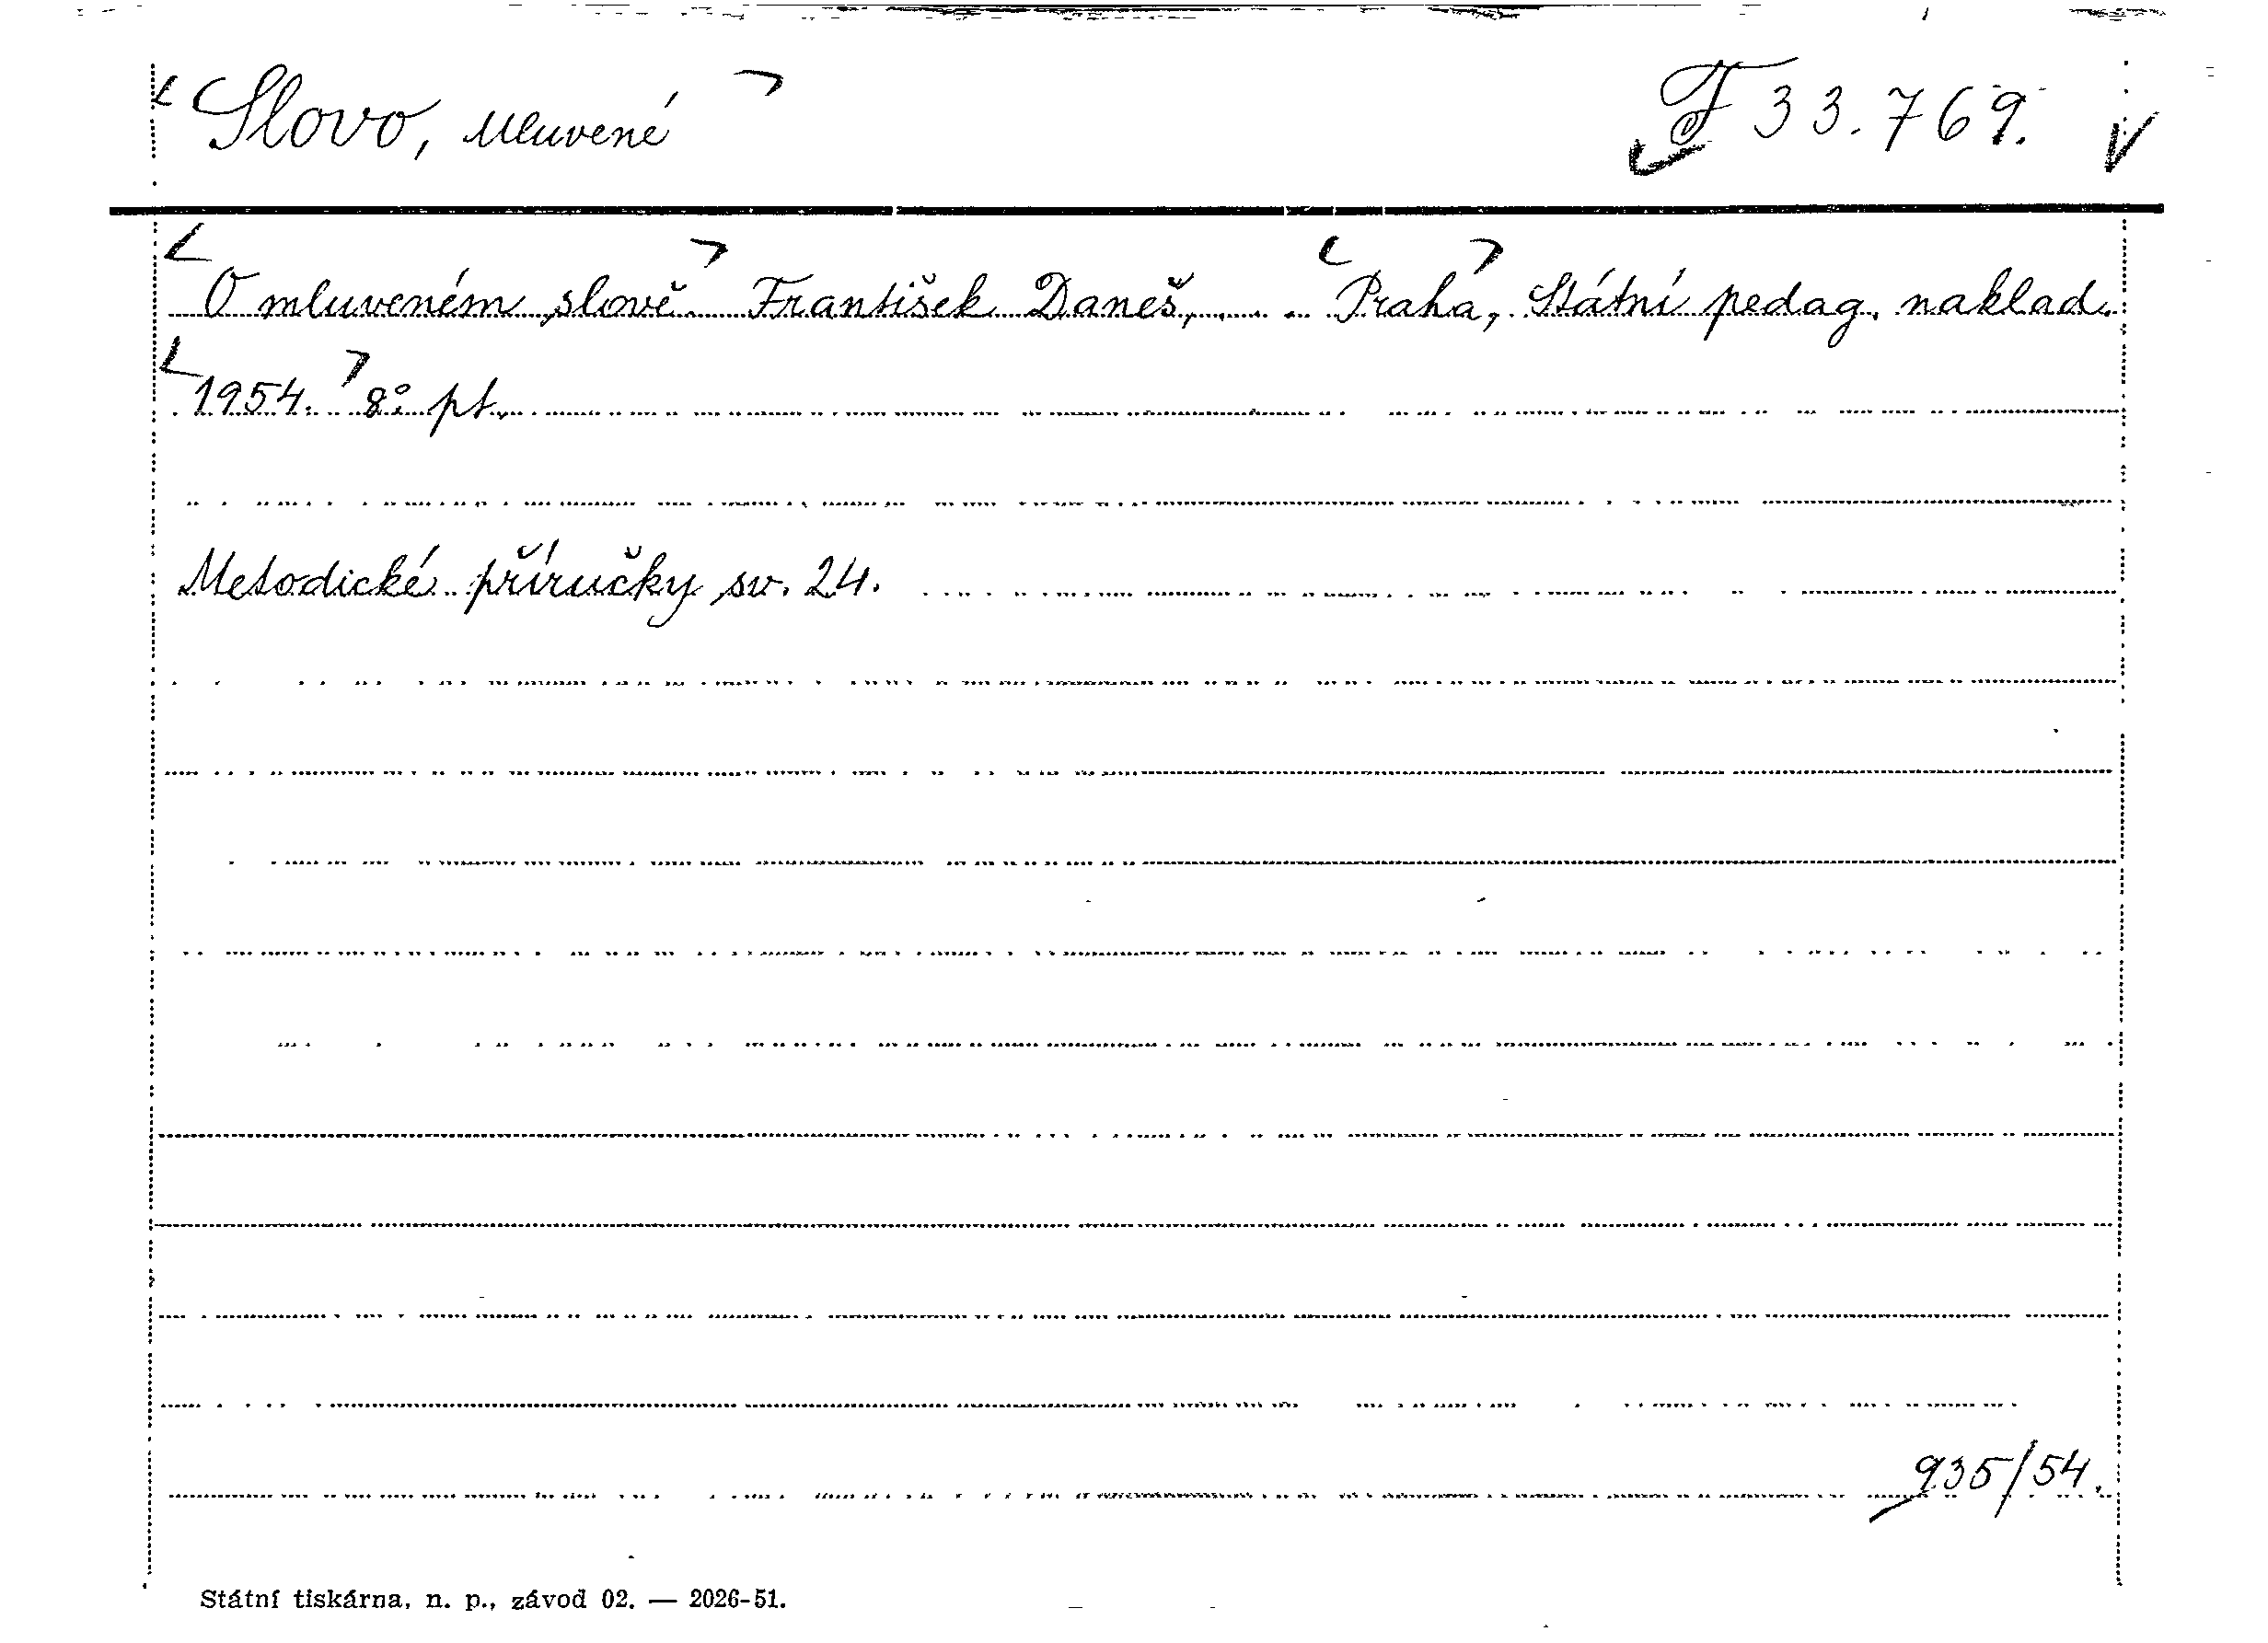 Slovo, mluvené
F 33.769.
O mluveném slově. František Daneš, . . . Praha, Státní pedag. naklad.
1954. 8°. pt.
Metodické příručky sv. 24.
935/54.
Státní tiskárna, n. p., závod 02. — 2026-51.